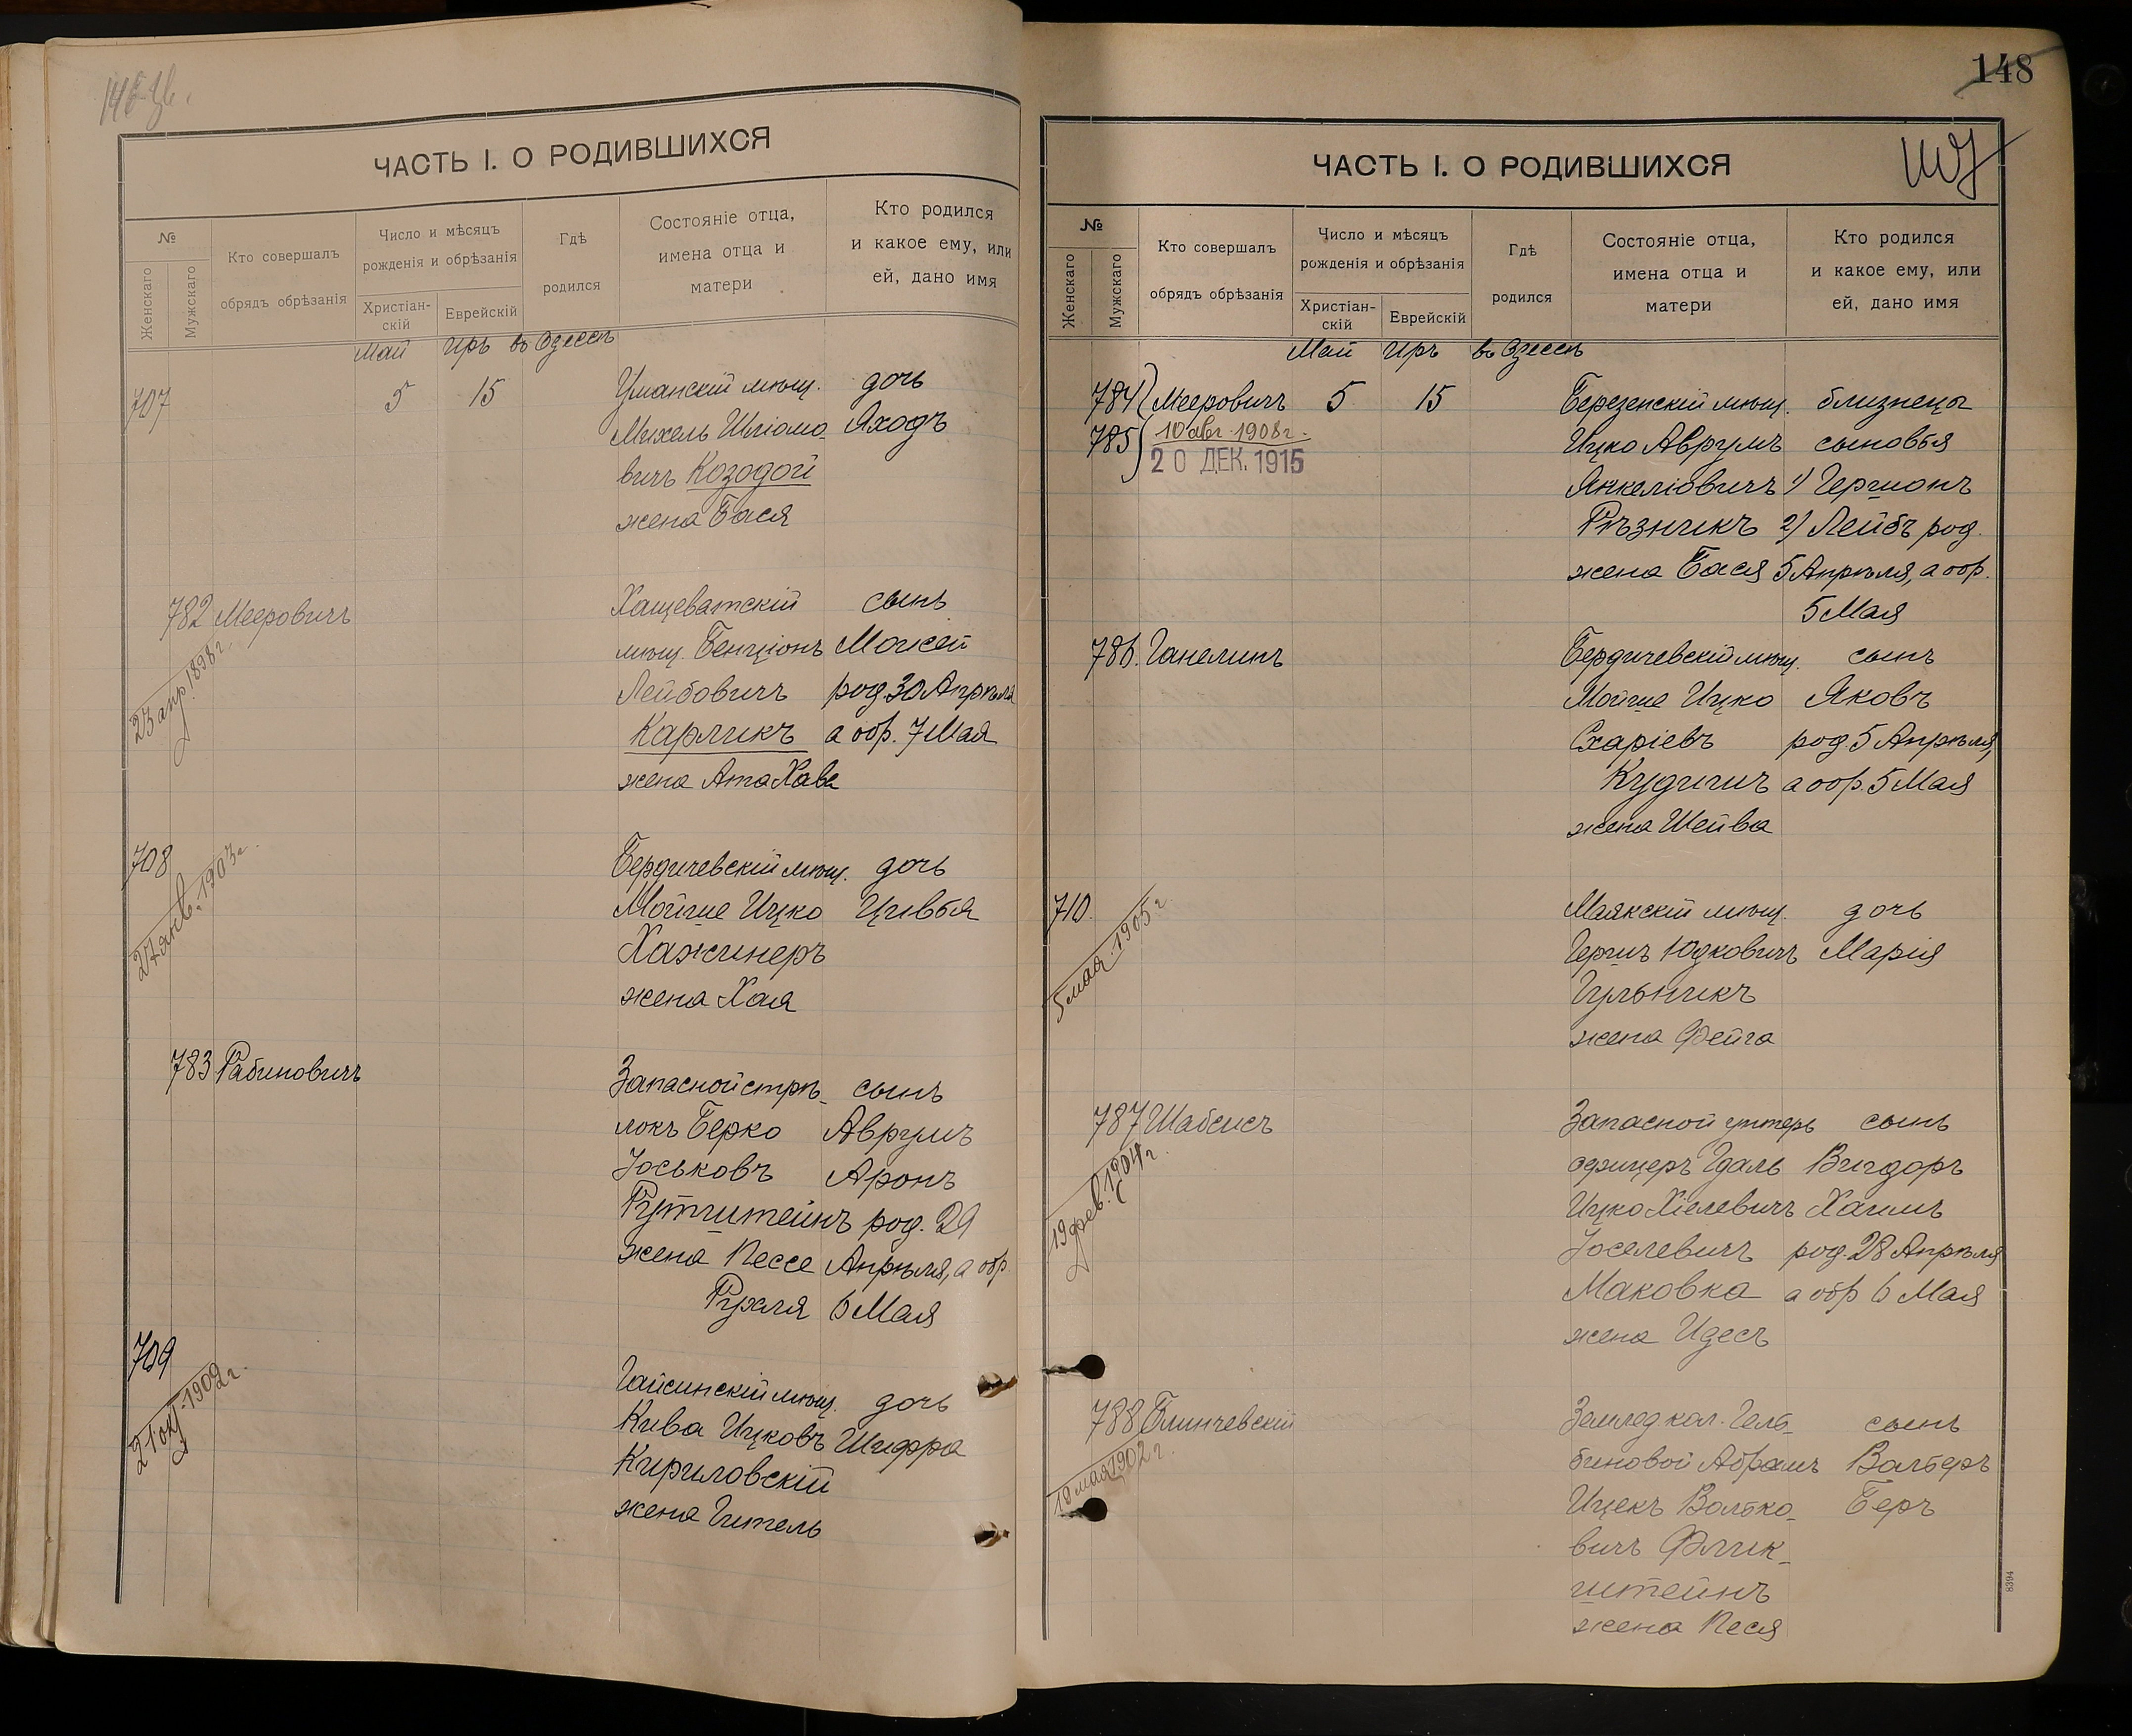 ЧАСТЬ I. О РОДИВШИХСЯ
№
Женскаго
Мужскаго
Кто совершалъ
обрядъ обрѣзанія
Число и мѣсяцъ
рожденія и обрѣзанія
Христіан-
скій
Еврейскій
Гдѣ
родился
Состояніе отца,
имена отца и
матери
Кто родился
и какое ему, или
ей, дано имя
Май Иръ въ Одессѣ
707 5 15 Уманскій мѣщ. дочь
Михель Шліомо- Яходъ
вичъ Козодой
жена Бася
782 Мееровичъ Хащеватскій сынъ
23 апр 1898 г.
мѣщ. Бенціонъ Мойсей
Лейбовичъ род. 30 Апрѣля
Карликъ а обр. 7 Мая
жена Ата Хава
708 Бердичевскій мѣщ. дочь
27 янв. 1903 г.
Мойше Ицко Цивья
Хажинеръ
жена Хая
783 Рабиновичъ Запасной стрѣ- сынъ
локъ Берко Аврумъ
Іоськовъ Аронъ
Рутштейнъ род. 29
жена Пессе Апрѣля, а обр.
Рухля 6 Мая
709 Гайсинскій мѣщ. дочь
21 окт 1902 г.
Кива Ицковъ Шифра
Кириловскій
жена Гитель
148
ЧАСТЬ I. О РОДИВШИХСЯ
№
Женскаго
Мужскаго
Кто совершалъ
обрядъ обрѣзанія
Число и мѣсяцъ
рожденія и обрѣзанія
Христіан-
скій
Еврейскій
Гдѣ
родился
Состояніе отца,
имена отца и
матери
Кто родился
и какое ему, или
ей, дано имя
Май Иръ въ Одессѣ
784 Мееровичъ 5 15 Березенскій мѣщ. близнецы
785 10 авг. 1908 г. Ицко Аврумъ сыновья
20 ДЕК. 1915
Янкеліовичъ 1) Гершонъ
Рѣзникъ 2) Лейбъ род.
жена Бася 5 Апрѣля, а обр.
5 Мая
786. Ганелинъ Бердичевскій мѣщ. сынъ
Мойше Ицко Яковъ
Схаріевъ род. 5 Апрѣля,
Кудишъ а обр. 5 Мая
жена Шейва
710. Маякскій мѣщ. дочь
5 мая 1905 г.
Гершъ Юдковичъ Марія
Гульникъ
жена Фейга
787 Шабсисъ Запасной унтеръ сынъ
19 фев. 1904 г.
офицеръ Гдаль Вигдоръ
Ицко Хіелевичъ Хаимъ
Іоселевичъ род. 28 Апрѣля
Маковка а обр 6 Мая
жена Идесъ
788 Блинчевскій Землед кол. Гель- сынъ
19 мая 1902 г.
биновой Абрамъ Вольберъ
Ицекъ Волько- Беръ
вичъ Флик-
штейнъ
жена Песя
8394